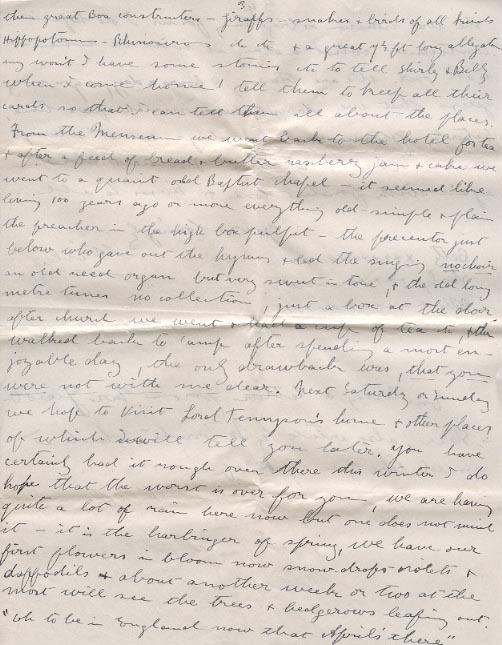 3
then great Boa constructers - jiraffs - snakes & birds of all kinds
Hippopotomus - Rhinoscirous &c &c & a great 7½ ft long allegator
my won't I have some stories etc to tell Shirly & Billy
when I come home! tell them to keep all their
cards so that I can tell them all about the places.
From the Menseum we went back to the hotel for tea
& after a feed of bread & butter rasberry jam & cake we
went to a quaint odd Baptist chapel - it seemed like
living 100 years ago or more everything old simple & plain
the preacher in the high box pulpit - the precentor just
below who gave out the hymns & led the singing no choir
an old reed organ but very sweet in tone, & the old long
metre tunes no collection, just a box at the door
after church we went & had a cup of tea etc, & then
walked back to camp after spending a most en-
joyable day, the only drawback was, that you
were not with me dear. Next Saturday or Sunday
we hope to visit Lord Tennyson's home & other places
of which I will tell you later. You have
certainly had it rough over there this winter I do
hope that the worst is over for you, we are having
quite a lot of rain here now but one does not mind
it - it is the harbinger of spring, we have our
first flowers in bloom now snowdrops violets &
daffodils & about another week or two at the
most will see the trees & hedgerows leafing out.
"Oh to be in England now that April's there"